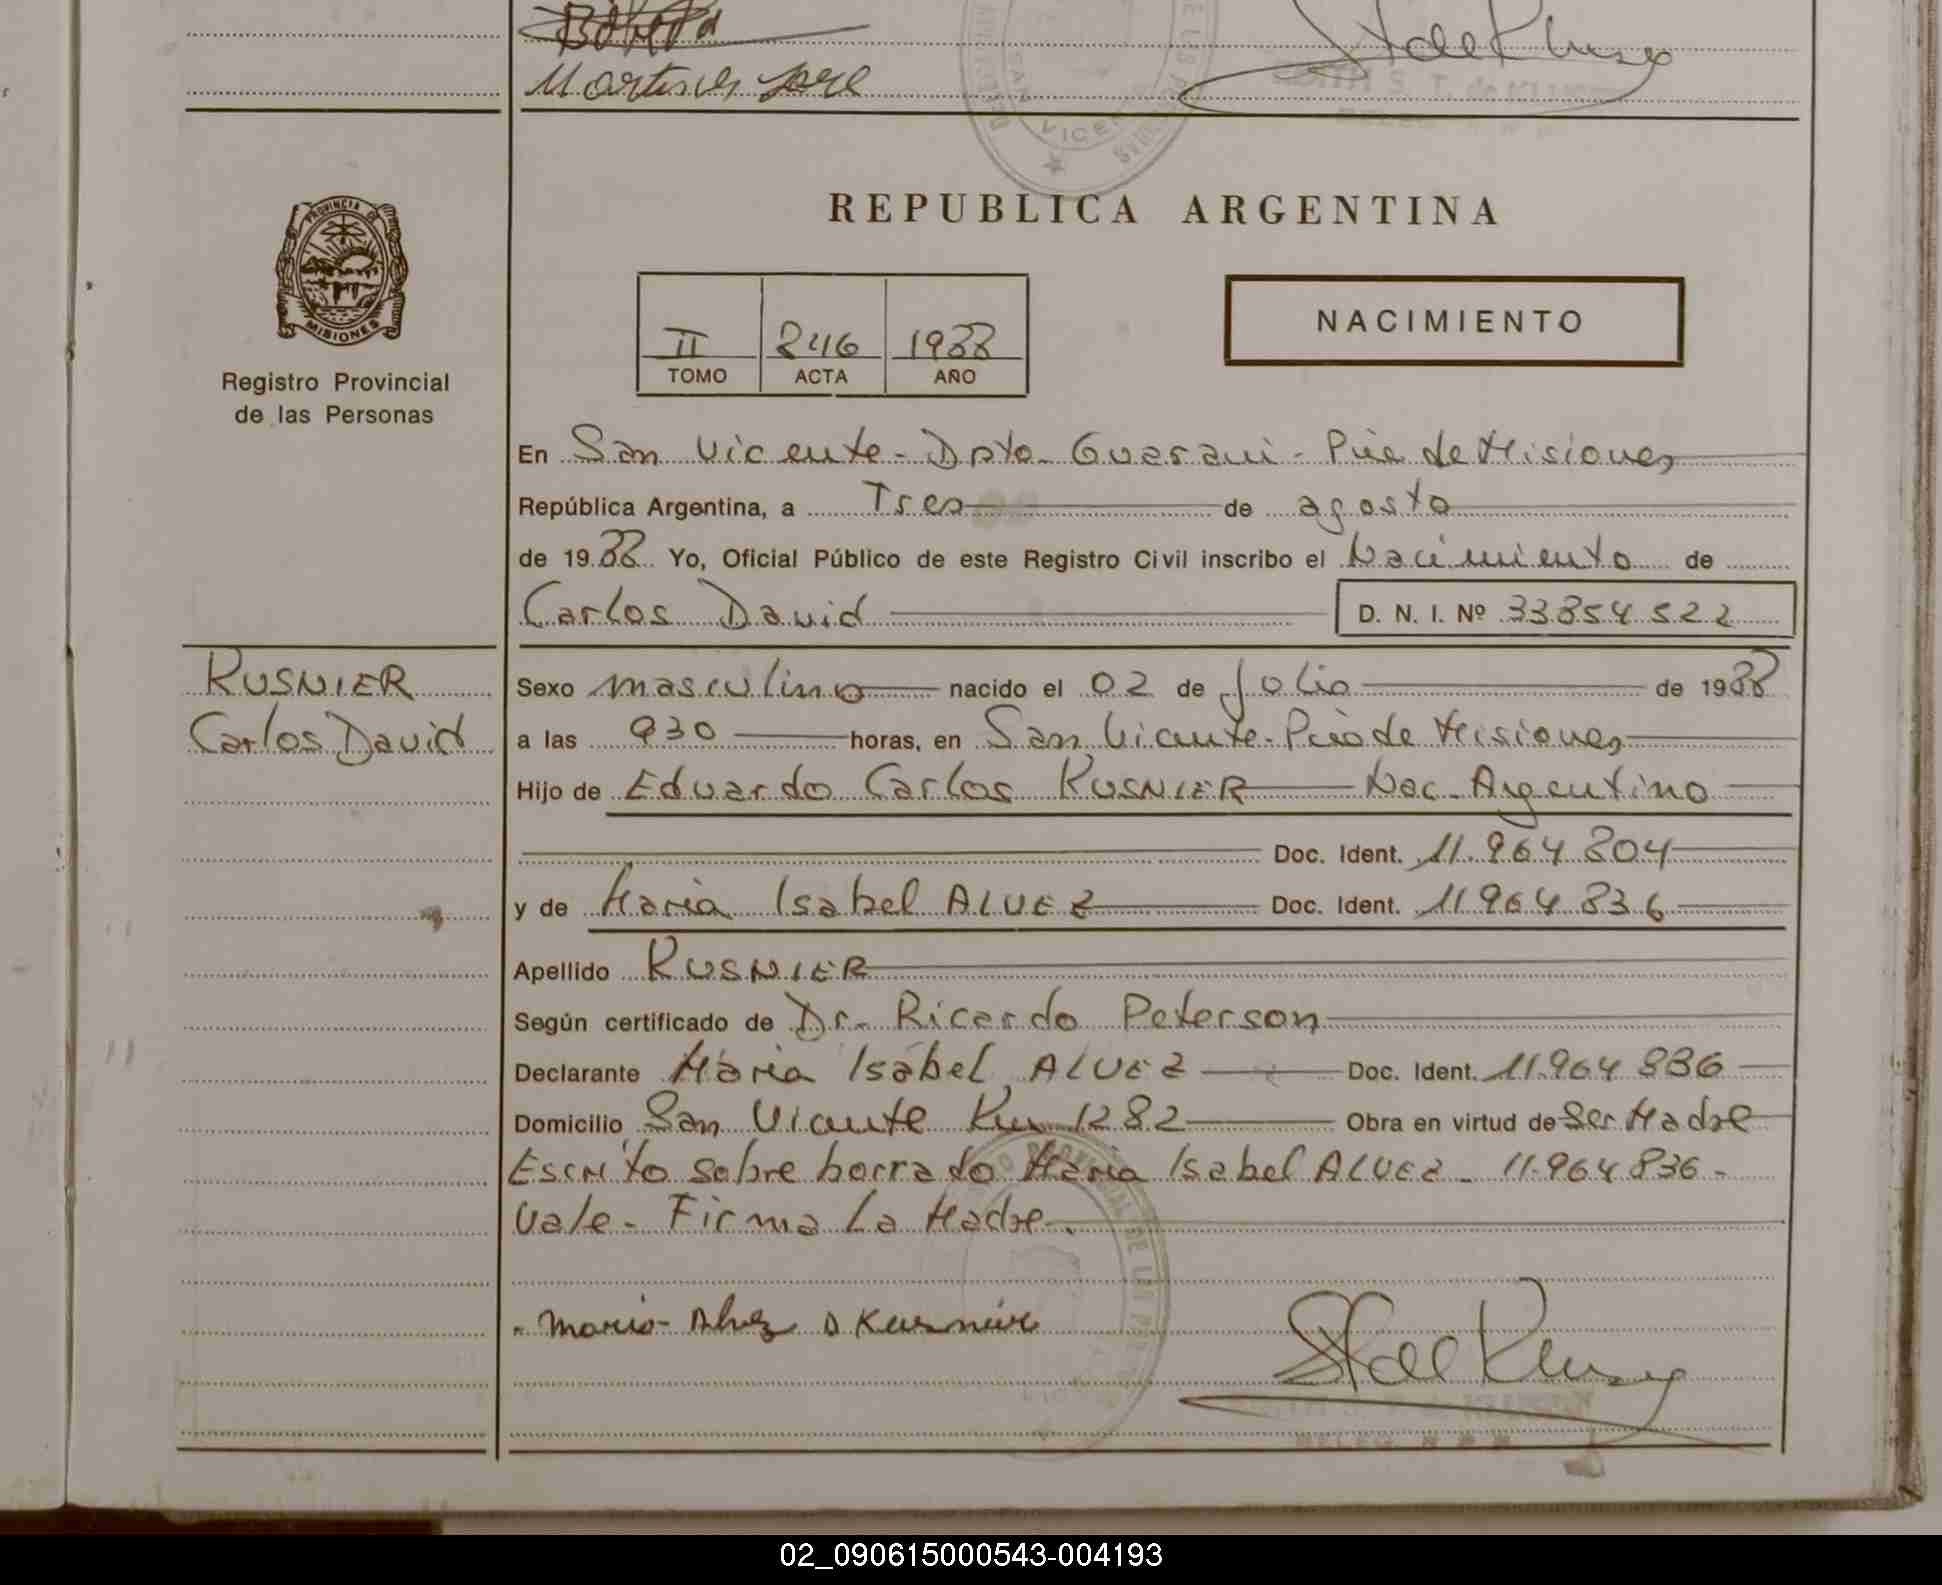 Martines José
REPUBLICA ARGENTINA
PROVINCIA DE
MISIONES
Registro Provincial
de las Personas
II 246 1988
TOMO ACTA AÑO
NACIMIENTO
En San Vicente - Dpto. Guarani - Pcia de Misiones
República Argentina, a Tres de agosto
de 1988 Yo, Oficial Público de este Registro Civil inscribo el Nacimiento de
Carlos David D. N. I. Nº 33854522
KUSNIER
Carlos David
Sexo masculino nacido el 02 de Julio de 1988
a las 930 horas, en San Vicente - Pcia de Misiones
Hijo de Eduardo Carlos KUSNIER Nac. Argentino
Doc. Ident. 11.964.804
y de Maria Isabel ALVEZ Doc. Ident. 11964836
Apellido KUSNIER
Según certificado de Dr. Ricardo Peterson
Declarante Maria Isabel ALVEZ Doc. Ident. 11.964 836
Domicilio San Vicente Km 1282 Obra en virtud de Ser Madre
Escrito sobre borrado Maria Isabel ALVEZ - 11.964 836 -
Vale - Firma La Madre.
02_090615000543-004193